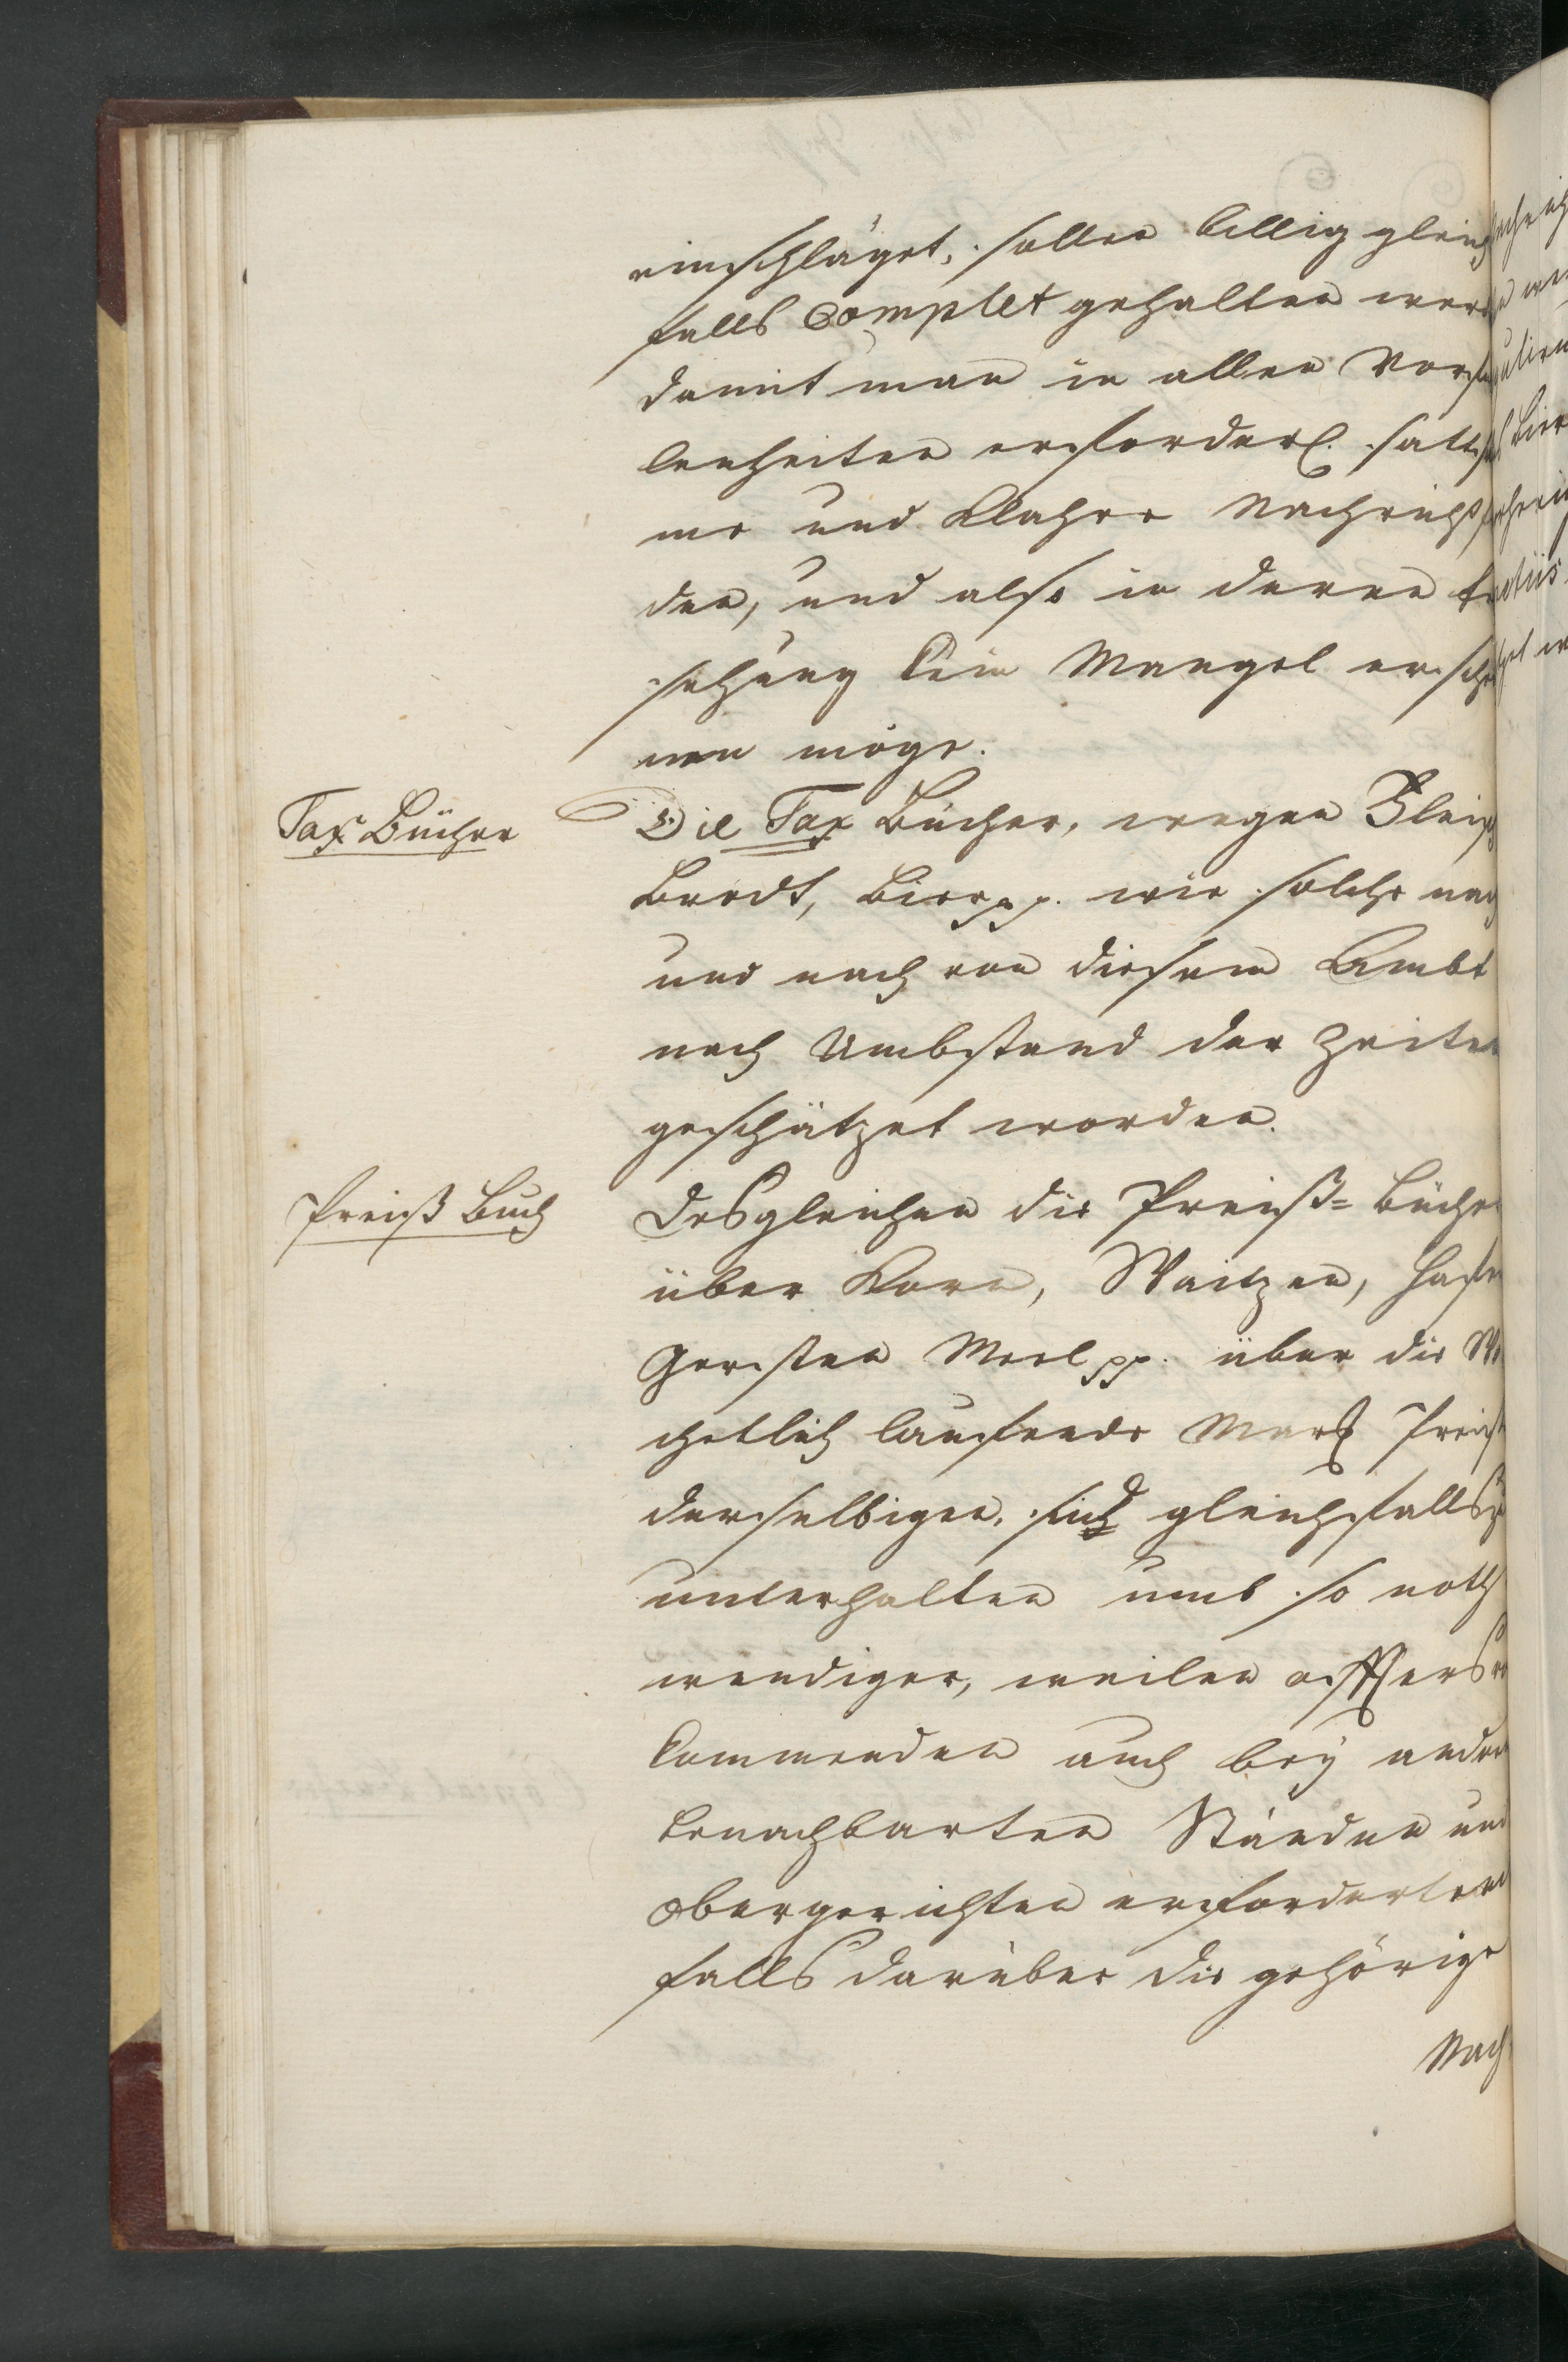 einschläget, sollen billig gleich
falls complet gehalten werd
damit man in allen Vorfa
lenheiten erforderl. sattsa
me und klahre Nachricht
den, und also in deren
sehung kein Mangel erschei
nen möge.
Tax Bücher
Die Tax Bücher, wegen Fleisch
Brodt, Bier pp. wie solche nach
und nach von diesem Ambt
nach Umbstand der Zeiten
geschätzet worden.
Preiß Buch
Desgleichen die Preiß= Bücher
über Korn, Waitzen, Hafer
Gersten Meel pp. über die Wo
chetlich lauffende Mark Preiß
derselbigen, sind gleichfalls zu
unterhalten umb so noth
wendiger, weilen offters
kommenden auch bey andern
benachbarten Ständen und
Obergerichten erforderten
falls darüber die gehörige
Nach